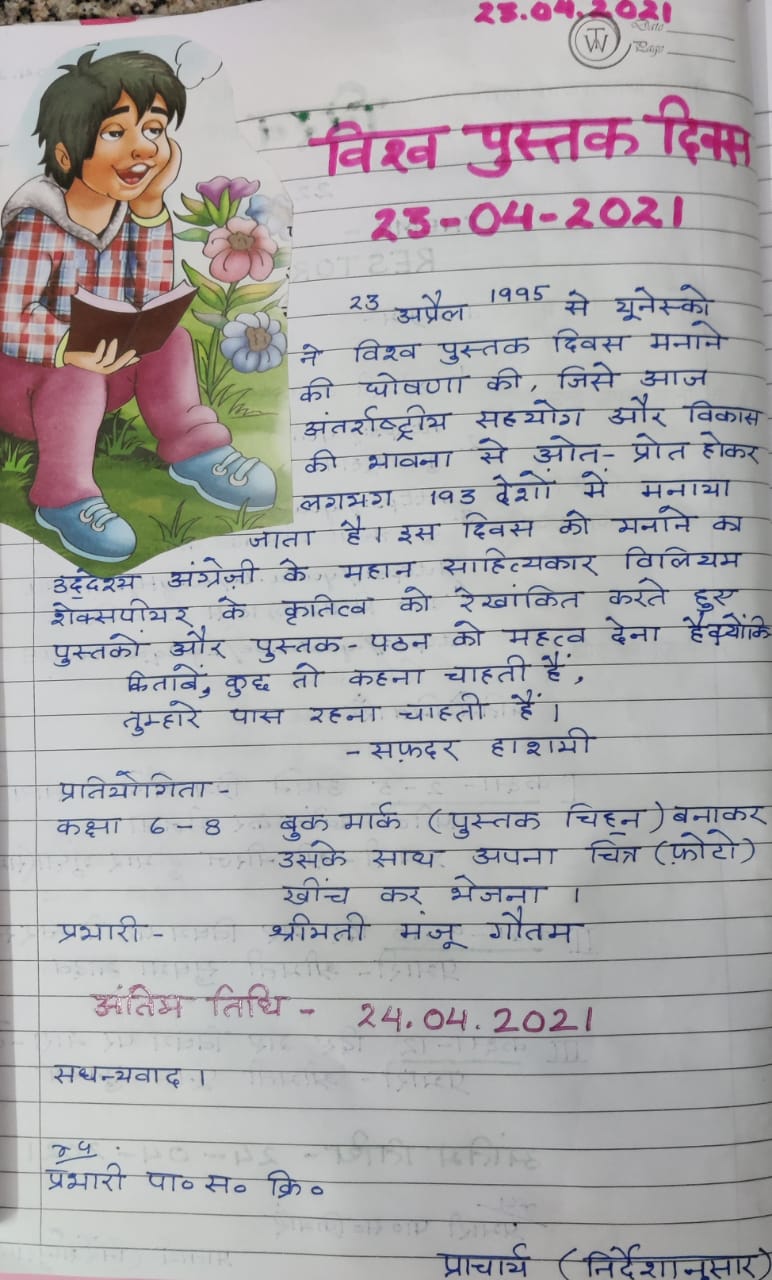 23.04.2021
Date
Page
विश्व पुस्तक दिवस
23-04-2021
23 अप्रैल 1995 से यूनेस्को
ने विश्व पुस्तक दिवस मनाने
की घोषणा की, जिसे आज
अंतर्राष्ट्रीय सहयोग और विकास
की भावना से ओत-प्रोत होकर
लगभग 193 देशों में मनाया
जाता है। इस दिवस को मनाने का
उद्देश्य अंग्रेज़ी के महान साहित्यकार विलियम
शेक्सपीयर के कृतित्व को रेखांकित करते हुए
पुस्तकों और पुस्तक-पठन को महत्व देना है क्योंकि
किताबें, कुछ तो कहना चाहती हैं,
तुम्हारे पास रहना चाहती हैं।
- सफ़दर हाशमी
प्रतियोगिता -
कक्षा 6-8 बुक मार्क (पुस्तक चिह्न) बनाकर
उसके साथ अपना चित्र (फ़ोटो)
खींच कर भेजना।
प्रभारी- श्रीमती मंजू गौतम
अंतिम तिथि - 24.04.2021
सधन्यवाद।
प्रभारी पा० स० क्रि०
प्राचार्य (निर्देशानुसार)